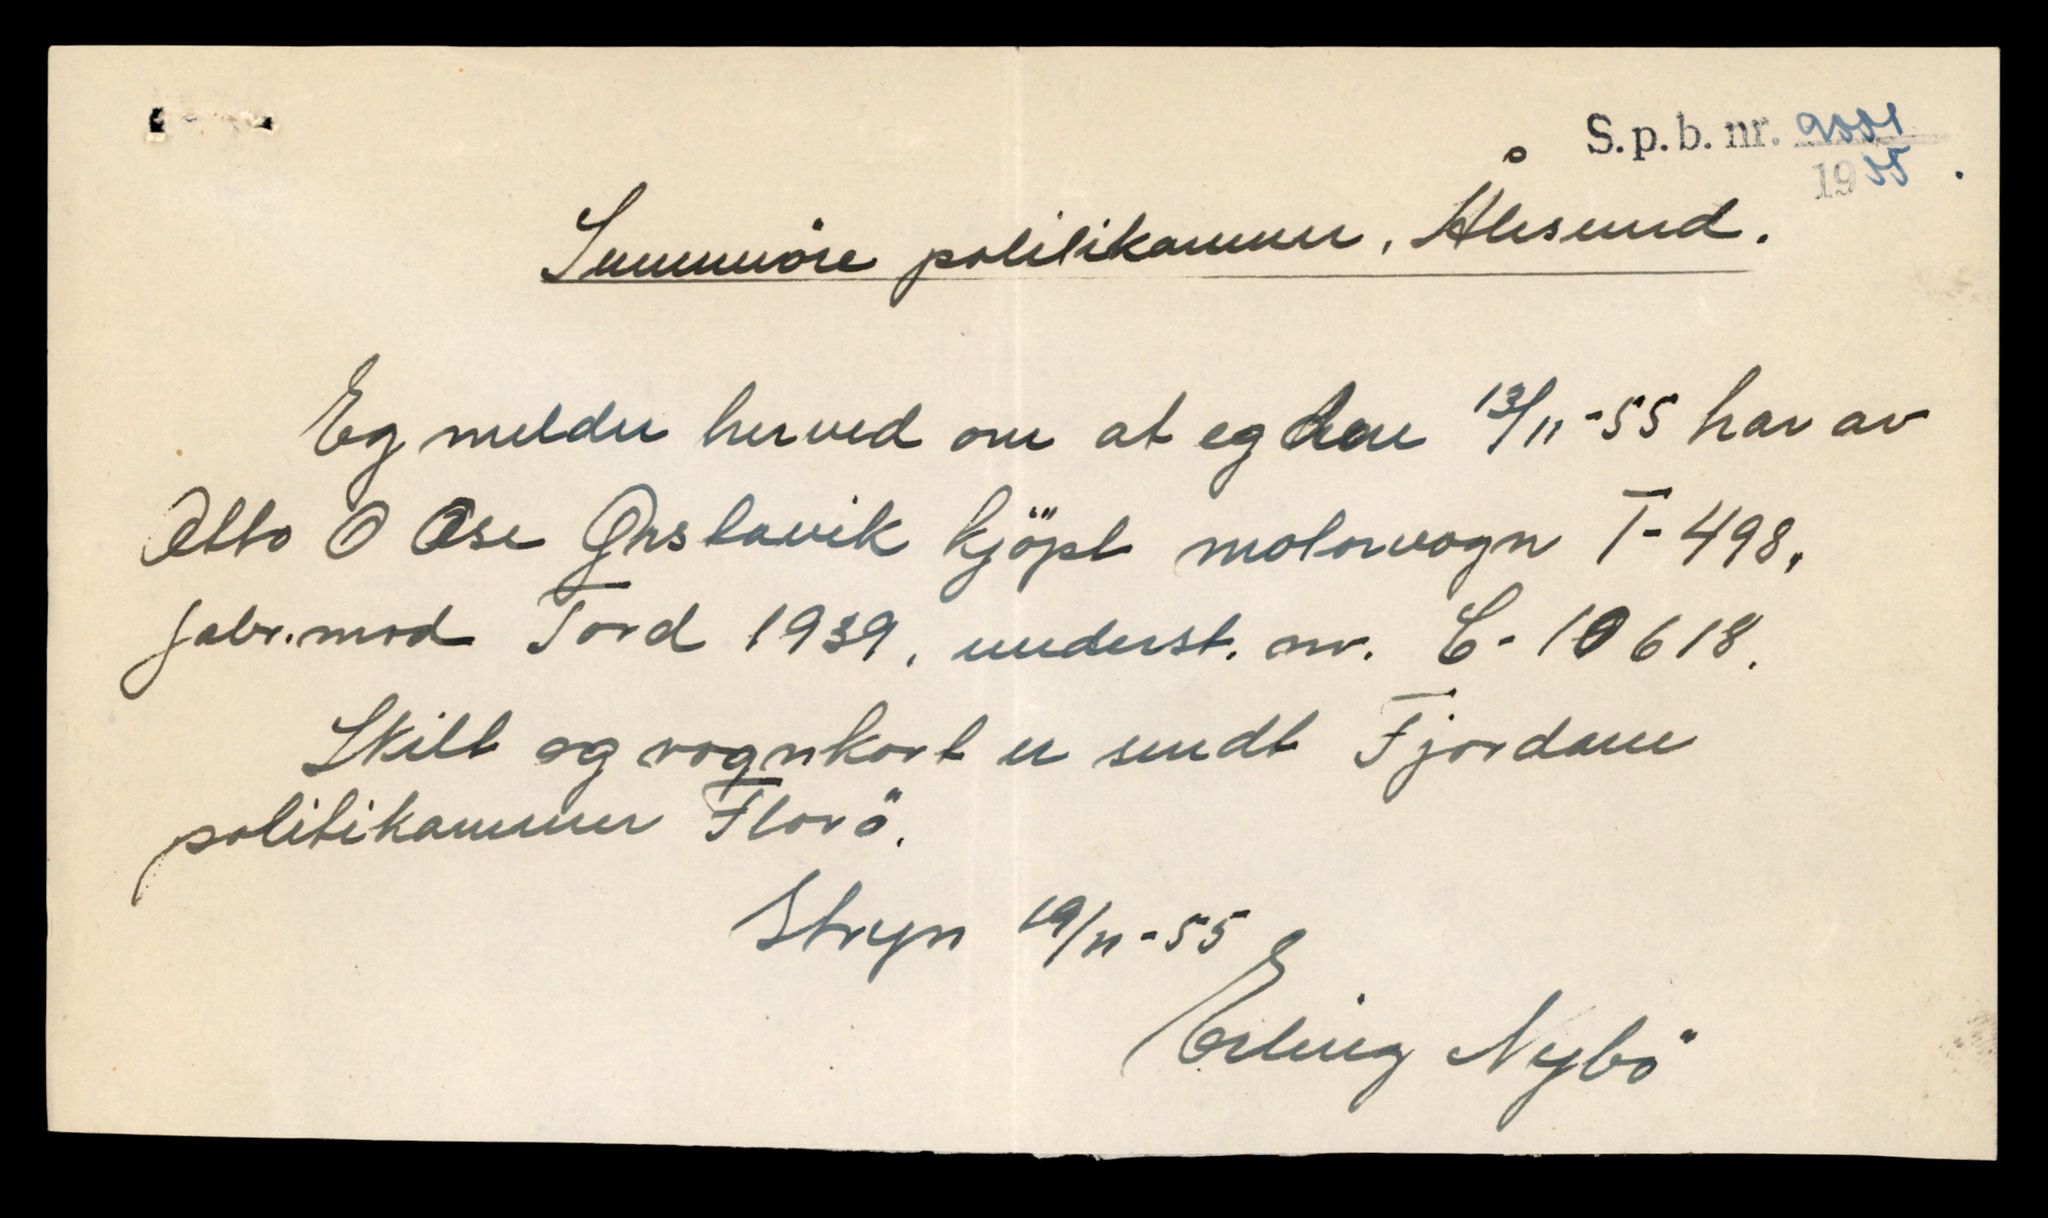 S.p.b. nr. 9001
1955.
Sunnmöre politikammer, Ålesund.
Eg melder herved om at eg den 13/11-55 har av
Otto O Ose Ørstavik kjöpt motorvogn T-498,
fabr.mrd Ford 1939, underst. nr. C-10618.
Skilt og vognkort er sendt Fjordane
politikammer Florö.
Stryn 19/11-55
Erling Nybö